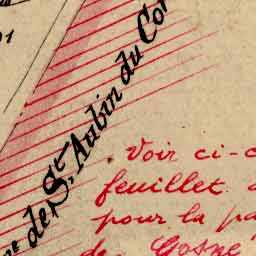 01
de St. Aubin du Co
Voir ci-c
feuillet
pour la pa
de Gosne